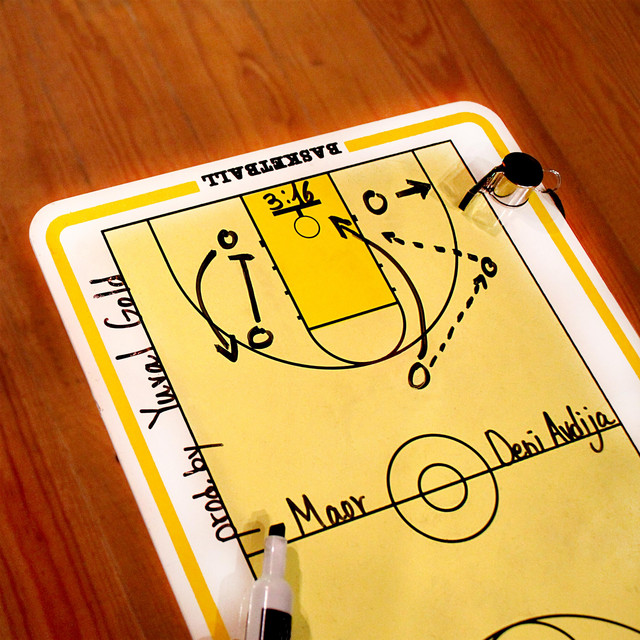 BASKETBALL
3:16
Maor
Deni Avdija
Prod. by Yuval Gold